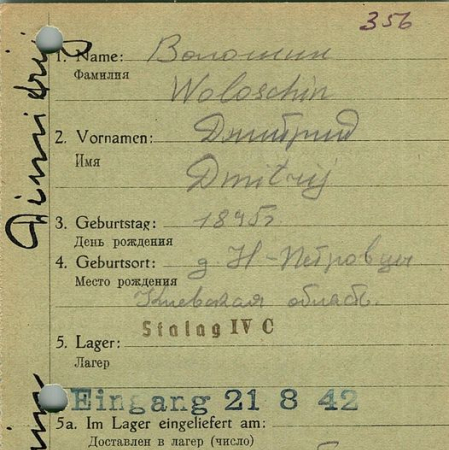 356
1. Name: Волошин
Фамилия
Woloschin
2. Vornamen: Дмитрий
Имя
Dmitrij
3. Geburtstag:
День рождения
4. Geburtsort: д Н-Петровцы
Место рождения
Киевская область.
Stalag IV C
5. Lager:
Лагер
Eingang 21 8 42
5a. Im Lager eingeliefert am:
Доставлен в лагер (число)
Dimitrij